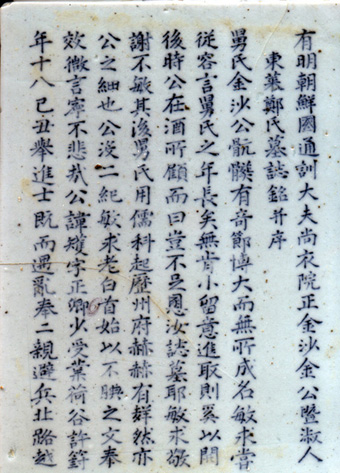 有明朝鮮國通訓大夫尚衣院正金沙金公暨淑人
東萊鄭氏墓誌銘并序
舅氏金沙公骯髒有奇節博大而無所成名敏求嘗
從容言舅氏之年長矣無肯小留意進取則奚以聞
後時公在酒所顧而曰豈不足慁汝誌墓耶敏求敬
謝不敏其後舅氏用儒科起歷州府赫赫有然亦
公之細也公沒二紀敏求老白首始以不腆之文奉
效微言寧不悲哉公諱字正卿少受業荷谷許篈
年十八己丑舉進士既而遇亂奉二親避兵北路越